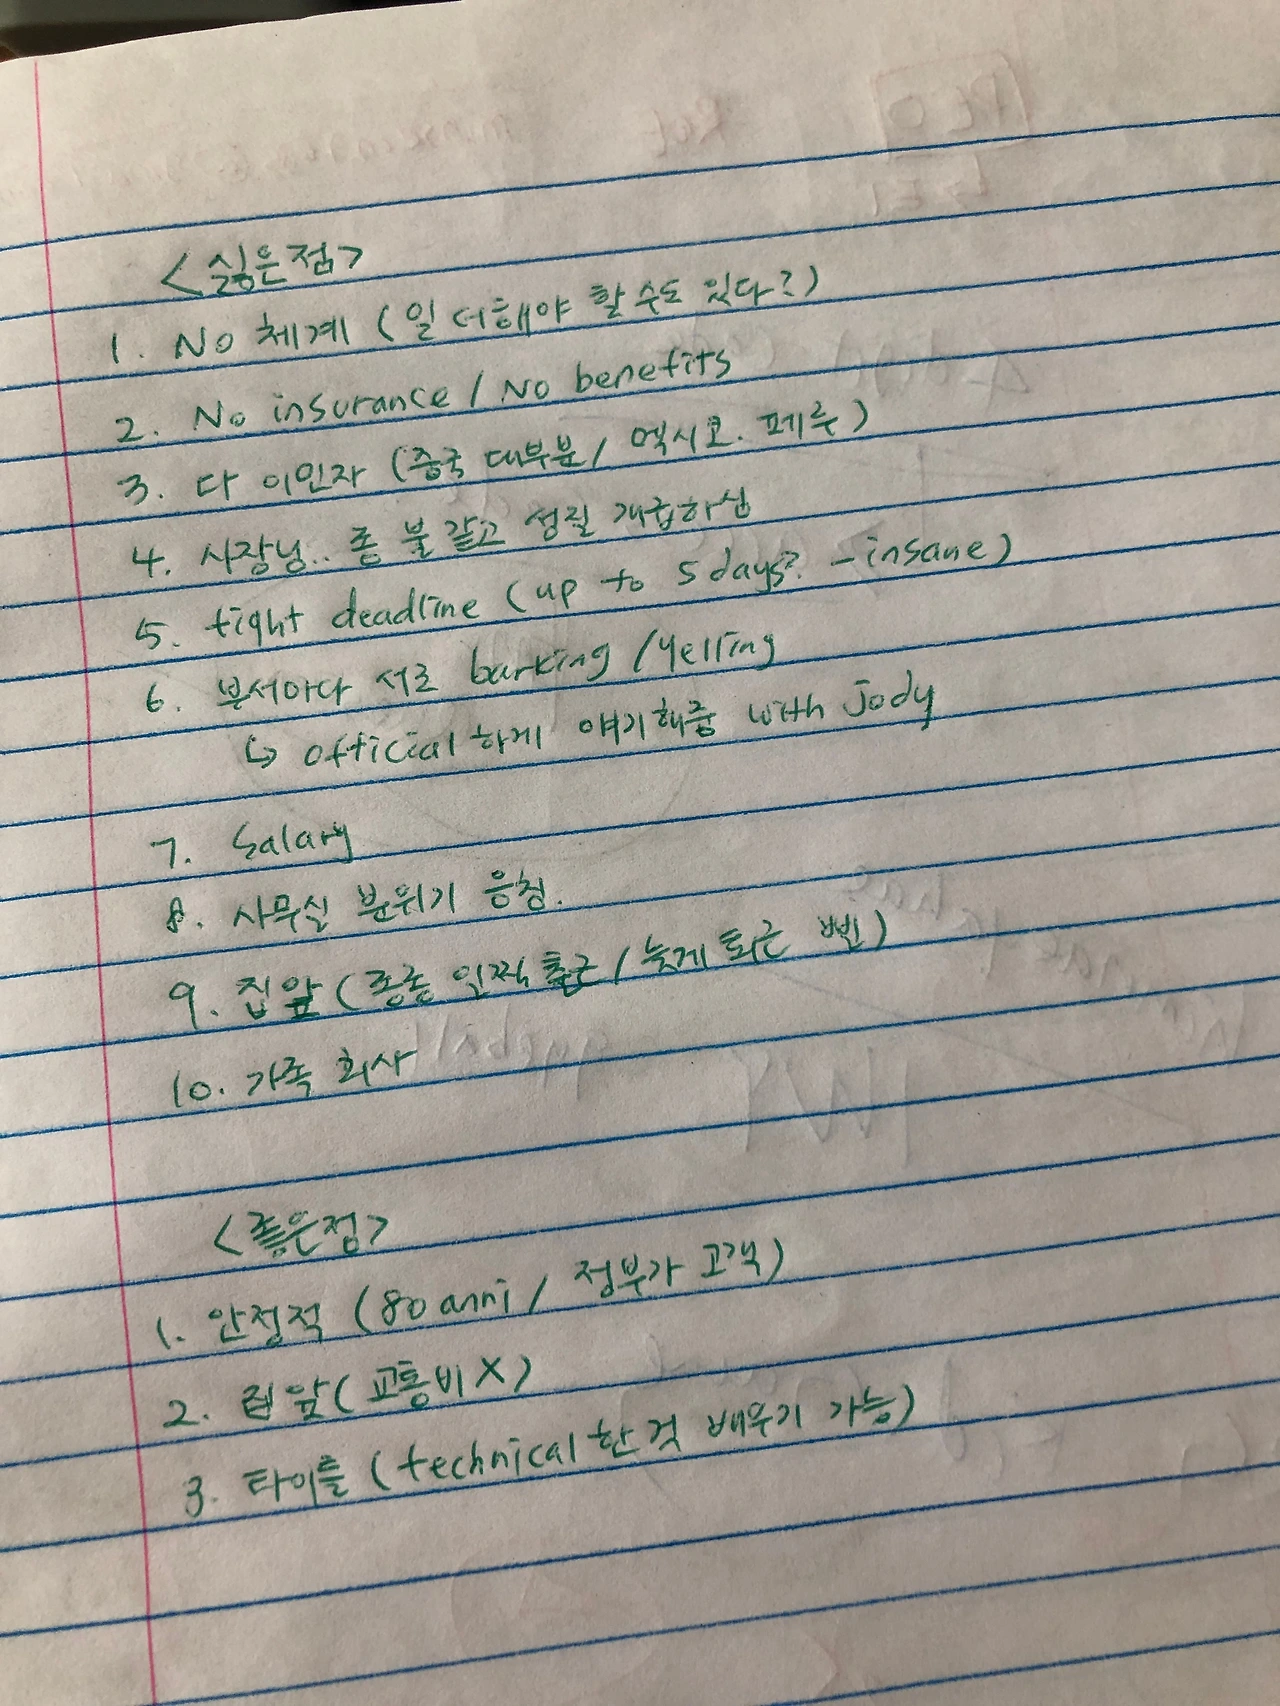 <싫은점>
1. No 체계 (일 더해야 할 수도 있다?)
2. No insurance / No benefits
3. 다 이민자 (중국 대부분 / 멕시코. 페루)
4. 사장님.. 좀 불 같고 성질 개급하심
5. tight deadline (up to 5 days? - insane)
6. 부서마다 서로 barking / yelling
↳ official하게 얘기해줌 with Jody
7. Salary
8. 사무실 분위기 응칭.
9. 집앞 (종종 일찍 출근 / 늦게 퇴근 삘)
10. 가족 회사
<좋은점>
1. 안정적 (80 anni / 정부가 고객)
2. 집 앞 (교통비 X)
3. 타이틀 (technical한 것 배우기 가능)